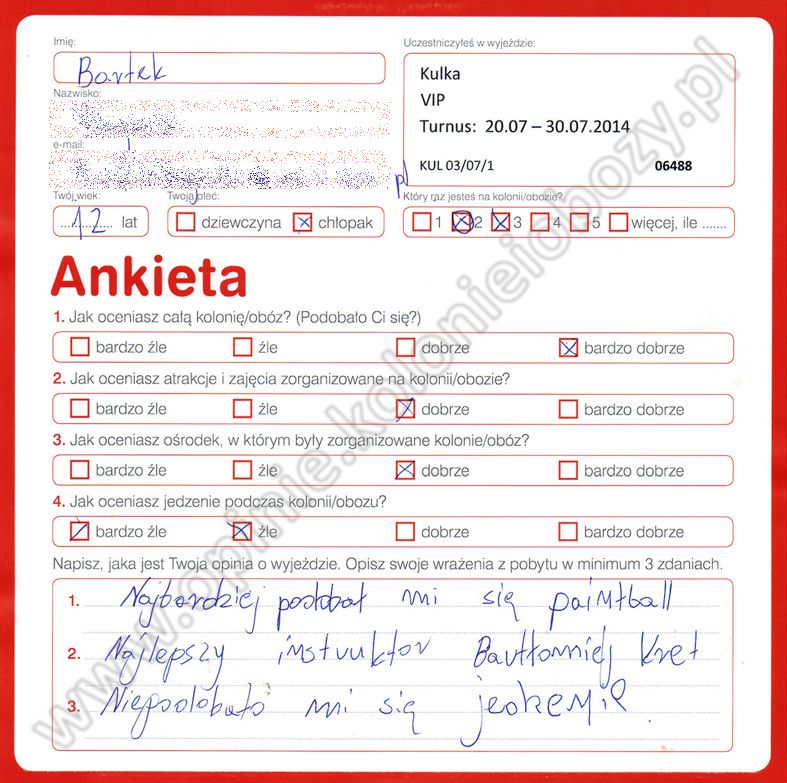 Imię:
Bartek
Uczestniczyłeś w wyjeździe:
Kulka
VIP
Turnus: 20.07 – 30.07.2014
KUL 03/07/1 06488
Nazwisko:
e-mail:
pl
Twój wiek:
12 lat
Twoja płeć:
dziewczyna chłopak
Który raz jesteś na kolonii/obozie?
1 2 3 4 5 więcej, ile .......
Ankieta
1. Jak oceniasz całą kolonię/obóz? (Podobało Ci się?)
bardzo źle źle dobrze bardzo dobrze
2. Jak oceniasz atrakcje i zajęcia zorganizowane na kolonii/obozie?
bardzo źle źle dobrze bardzo dobrze
3. Jak oceniasz ośrodek, w którym były zorganizowane kolonie/obóz?
bardzo źle źle dobrze bardzo dobrze
4. Jak oceniasz jedzenie podczas kolonii/obozu?
bardzo źle źle dobrze bardzo dobrze
Napisz, jaka jest Twoja opinia o wyjeździe. Opisz swoje wrażenia z pobytu w minimum 3 zdaniach.
1. Najbardziej podobał mi się paintball
2. Najlepszy instruktor Kret
3. Niepodobało mi się
www.opinie.kolonieiobozy.pl